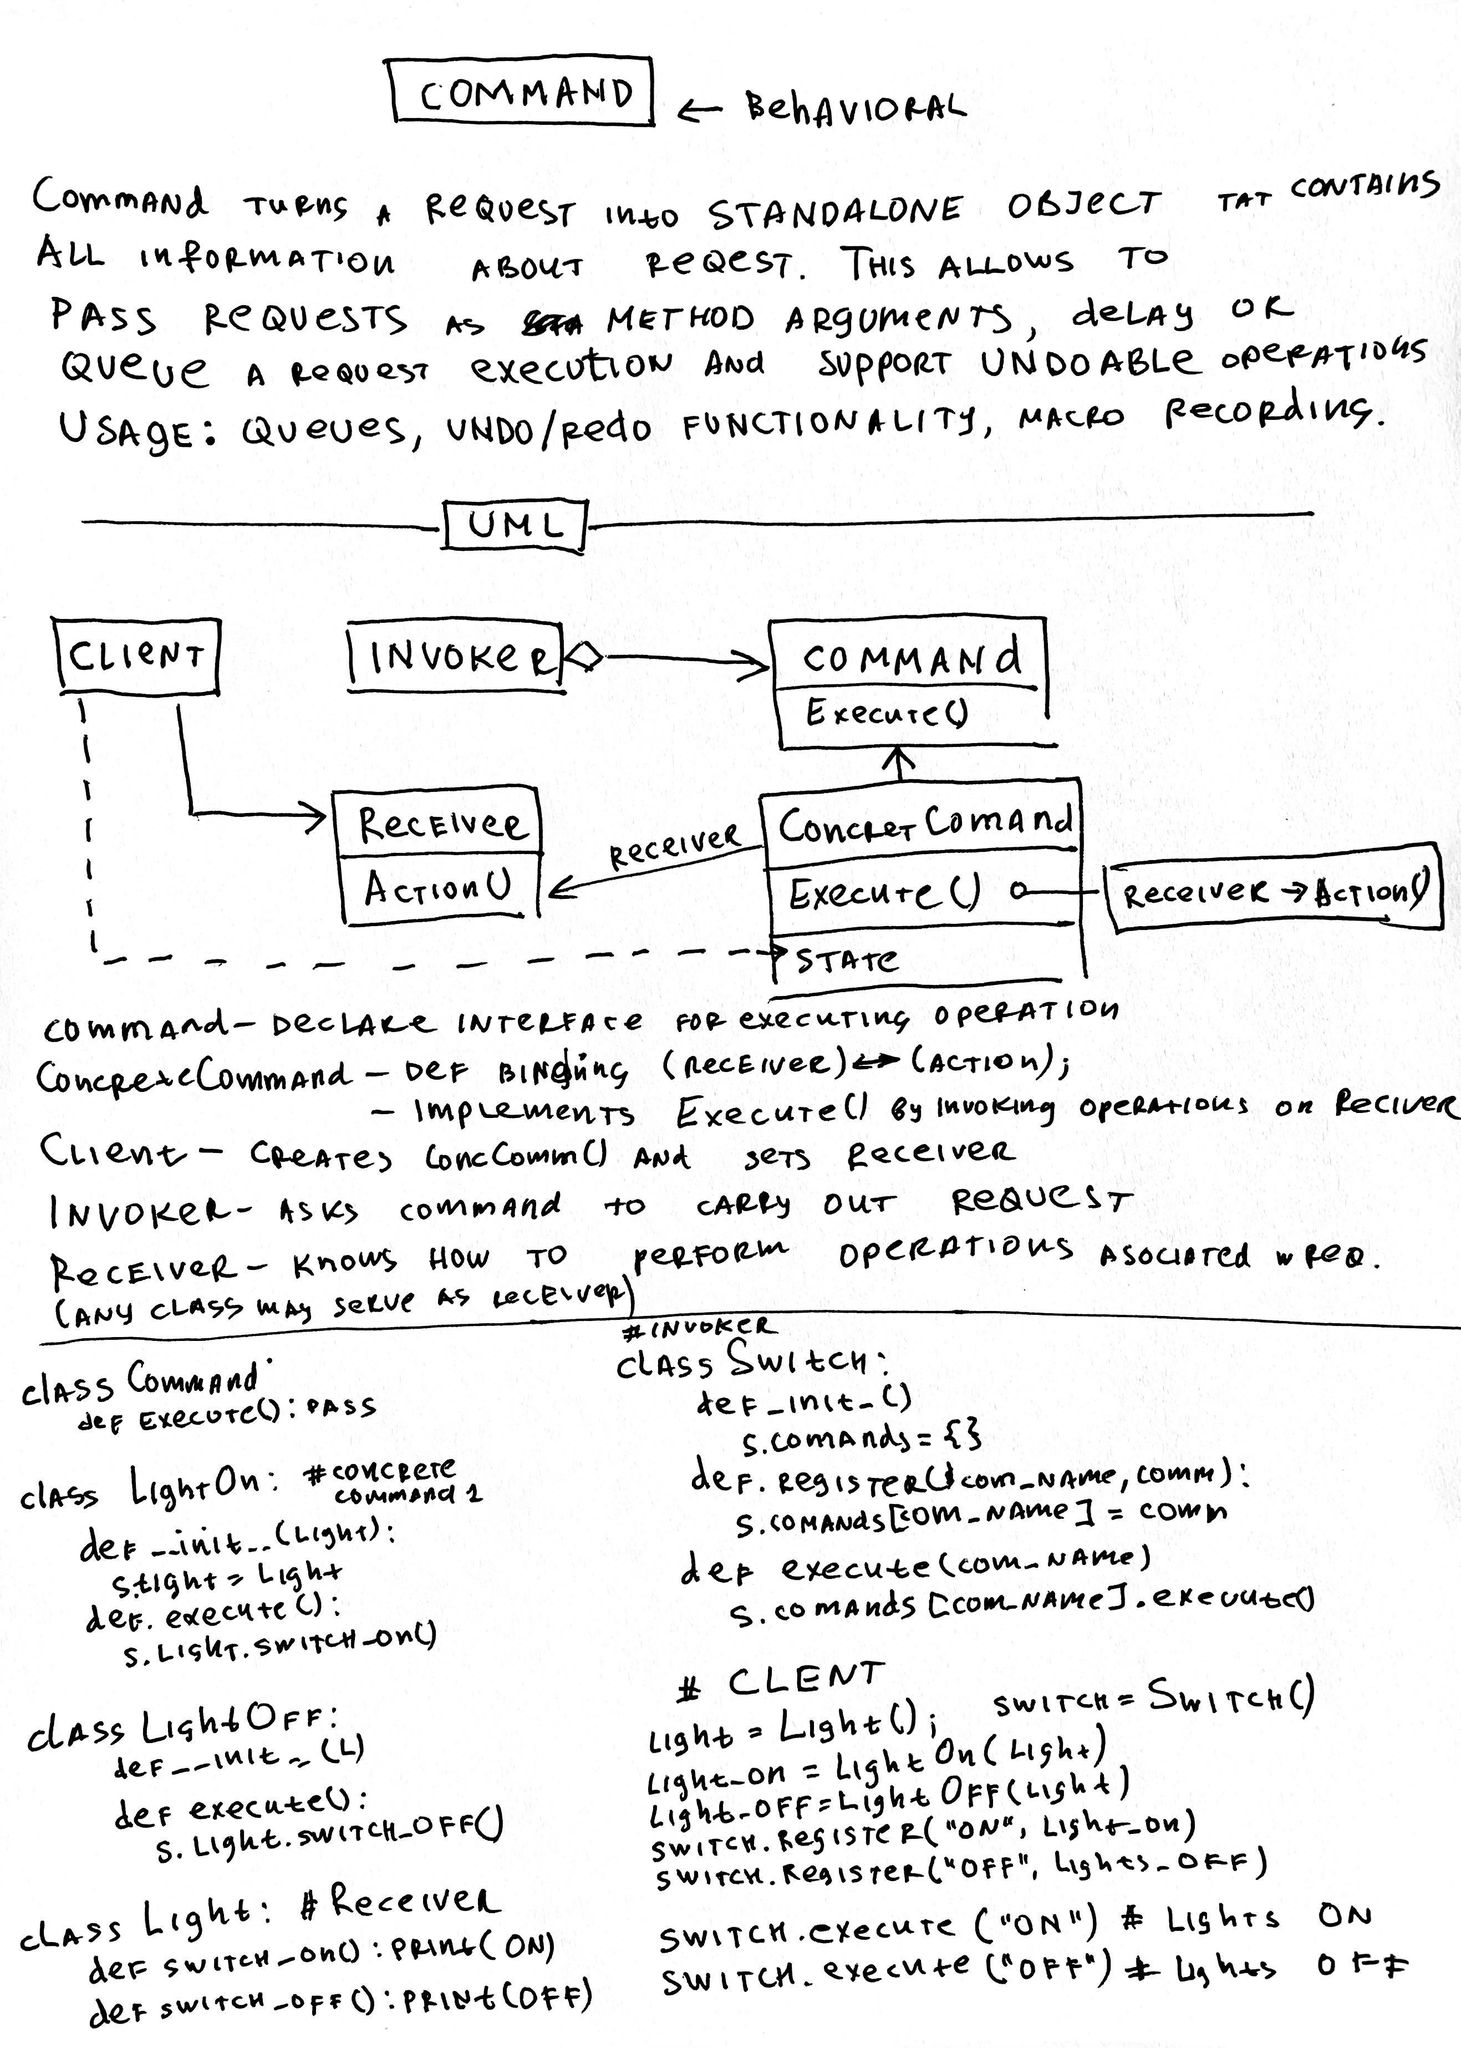 COMMAND ← BEHAVIORAL
COMMAND TURNS A REQUEST INTO STANDALONE OBJECT TAT CONTAINS
ALL INFORMATION ABOUT REQEST. THIS ALLOWS TO
PASS REQUESTS AS METHOD ARGUMENTS, DELAY OR
QUEUE A REQUEST EXECUTION AND SUPPORT UNDOABLE OPERATIONS
USAGE: QUEUES, UNDO/REDO FUNCTIONALITY, MACRO RECORDING.
UML
CLIENT INVOKER COMMAND
Execute()
RECEIVER
RECEIVER ConcretComand
Action() Execute() RECEIVER → ACTION()
STATE
COMMAND - DECLARE INTERFACE FOR EXECUTING OPERATION
ConcreteCommand - DEF BINDING (RECEIVER) ↔ (ACTION);
- IMPLEMENTS Execute() BY INVOKING OPERATIONS ON RECIVER
Client - CREATES ConcComm() AND SETS RECEIVER
INVOKER - ASKS COMMAND TO CARRY OUT REQUEST
RECEIVER - KNOWS HOW TO PERFORM OPERATIONS ASOCIATED W REQ.
(ANY CLASS MAY SERVE AS RECEIVER)
class Command:
def Execute(): PASS
class LightOn: #CONCRETE
COMMAND 1
def __init__(Light):
s.Light = Light
def. execute():
s.Light.SWITCH_ON()
class LightOFF:
def __init__(L)
def execute():
s.Light.SWITCH_OFF()
class Light: # Receiver
def SWITCH_ON(): PRINT(ON)
def SWITCH_OFF(): PRINT(OFF)
#INVOKER
class Switch:
def _init_()
s.comands = {}
def. REGISTER(com_NAME, comm):
s.comands[com_NAME] = comm
def execute(com_NAME)
s.comands[com_NAME].execute()
# CLENT
Light = Light(); SWITCH = SWITCH()
Light_on = LightOn(Light)
Light_OFF = LightOFF(Light)
SWITCH.REGISTER("ON", Light_on)
SWITCH.REGISTER("OFF", Lights_OFF)
SWITCH.execute("ON") # Lights ON
SWITCH.execute("OFF") # Lights OFF